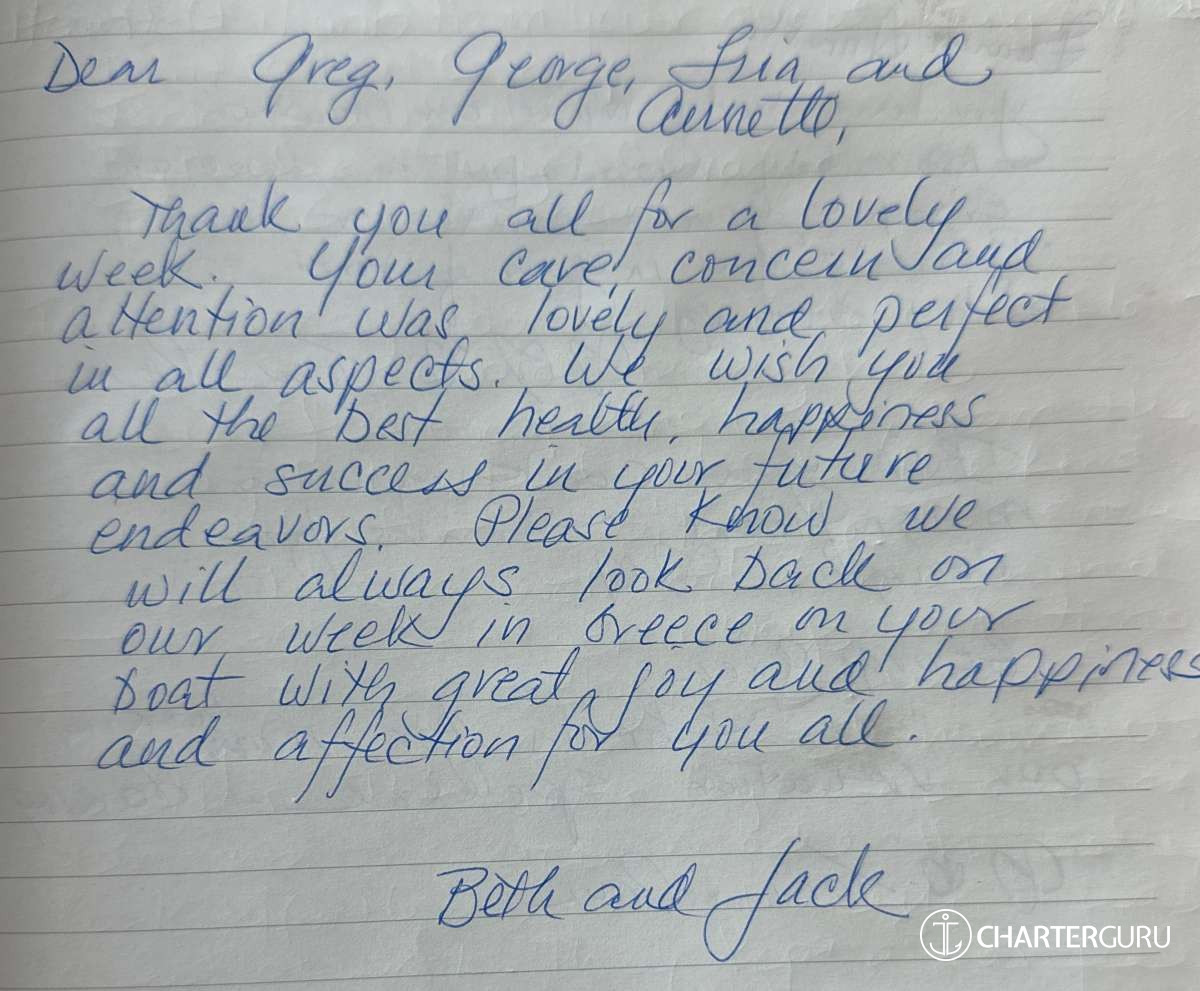 Dear Greg, George, Iria and
Annette,
Thank you all for a lovely
week. Your care, concern and
attention was lovely and perfect
in all aspects. We wish you
all the best health, happiness
and success in your future
endeavors. Please know we
will always look back on
our week in Greece on your
boat with great joy and happiness
and affection for you all.
Beth and Jack
CHARTERGURU